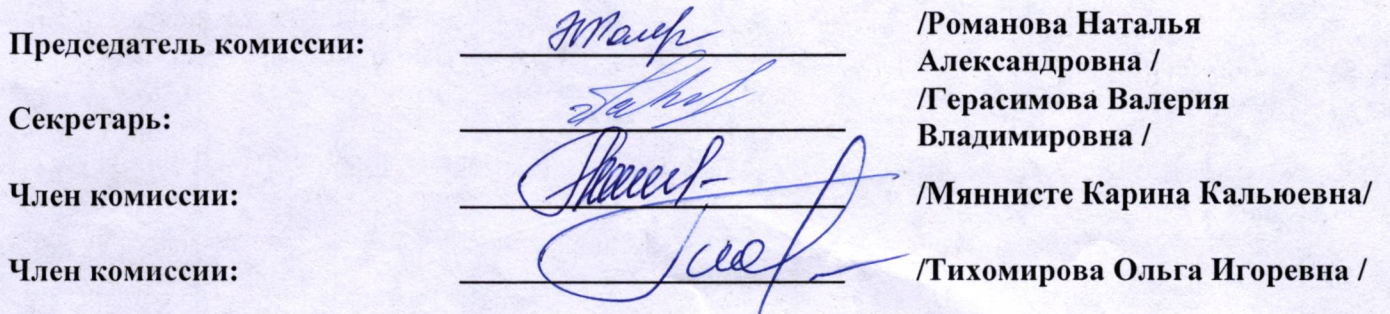 Председатель комиссии: /Романова Наталья
Александровна /
Секретарь: /Герасимова Валерия
Владимировна /
Член комиссии: /Мяннисте Карина Кальюевна/
Член комиссии: /Тихомирова Ольга Игоревна /